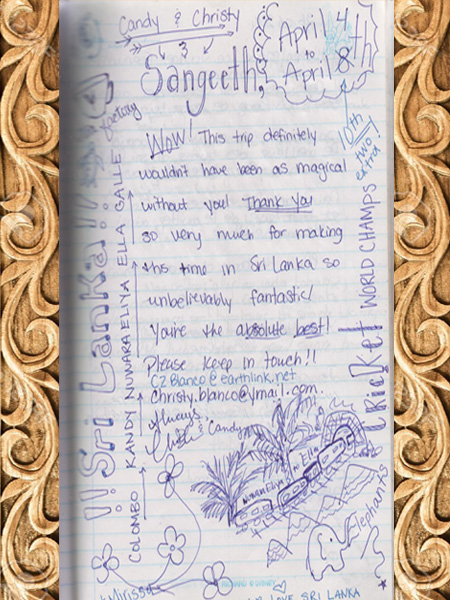 Candy & Christy
Sangeeth,
April 4
to
April 8th
10th
two
extra!
WOW! This trip definitely
wouldn't have been as magical
without you! Thank you
so very much for making
this time in Sri Lanka so
unbelievably fantastic!
You're the absolute best!
Please keep in touch!!
CZBlanco@earthlink.net
christy.blanco@ymail.com
Always,
& Candy
!! Sri Lanka!!
COLOMBO KANDY NUWARA ELIYA ELLA GALLE
factory
Cricket WORLD CHAMPS
Nuwara Eliya to Ella
Elephants
Mirissa
LOVE SRI LANKA